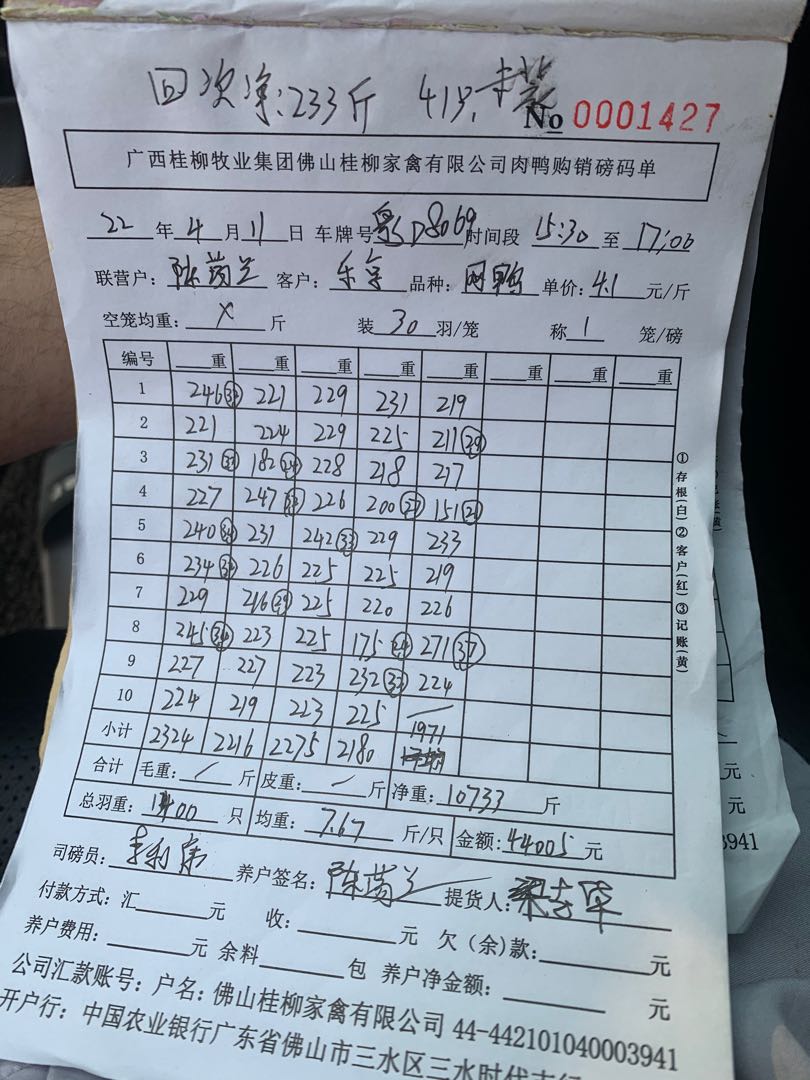 回次净:233斤 41只
No 0001427
广西桂柳牧业集团佛山桂柳家禽有限公司肉鸭购销磅码单
22 年 4 月 11 日 车牌号 D8069 时间段 15:30 至 17:00
联营户: 陈 兰 客户: 品种: 鸭 单价: 4.1 元/斤
空笼均重: X 斤 装 30 羽/笼 称 1 笼/磅
编号 重 重 重 重 重 重 重 重
1 246 221 229 231 219
2 221 224 229 225 211 29
3 231 182 228 218 217
4 227 247 226 200 27 151
5 240 231 242 33 229 233
6 234 226 225 225 219
7 229 216 29 225 220 226
8 245 34 223 225 175 24 271 37
9 227 227 223 232 33 224
10 224 219 223 225 /
小计 2324 2216 2275 2180 1971
合计 毛重: / 斤 皮重: / 斤 净重: 10733 斤
总羽重: 1400 只 均重: 7.67 斤/只 金额: 44005 元
司磅员: 李利 养户签名: 陈 兰 提货人: 梁志
付款方式: 汇 元 收: 元 欠(余)款: 元
养户费用: 元 余料 包 养户净金额: 元
公司汇款账号: 户名: 佛山桂柳家禽有限公司 44-442101040003941
开户行: 中国农业银行广东省佛山市三水区三水时代支行
①存根(白)②客户(红)③记账(黄)
元
元
3941